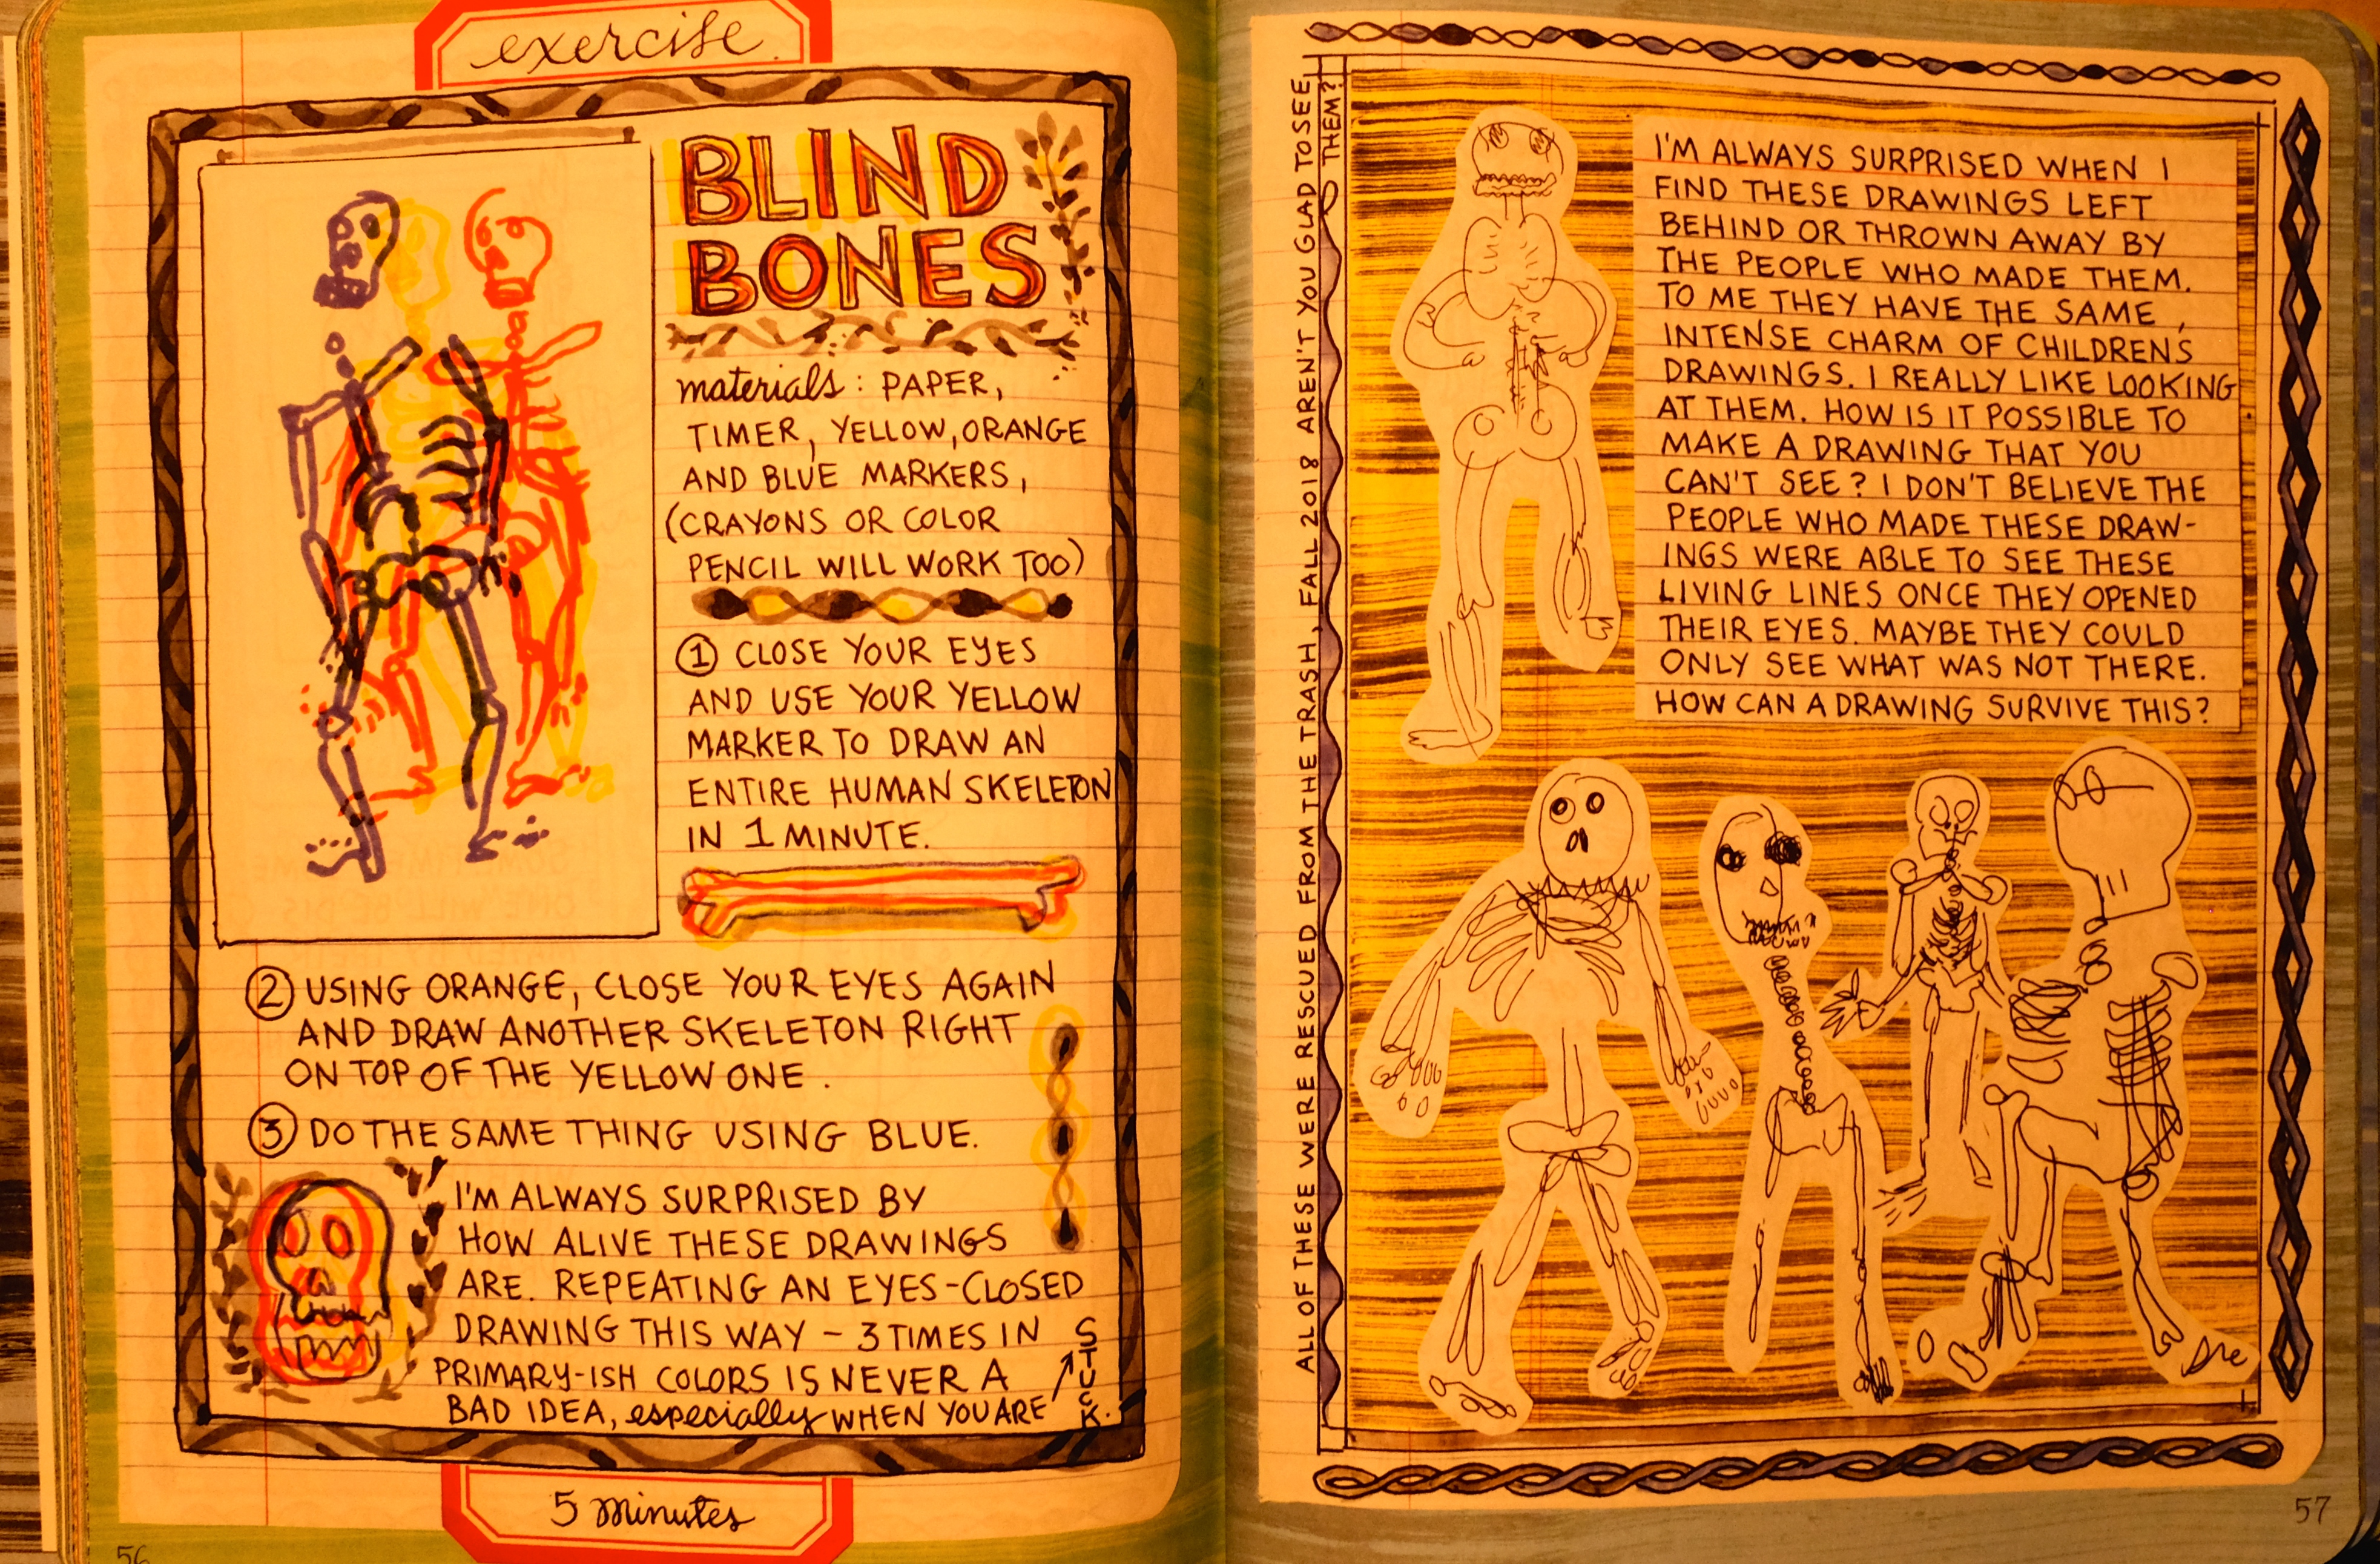 exercise.
BLIND
BONES
materials: PAPER,
TIMER, YELLOW, ORANGE
AND BLUE MARKERS,
(CRAYONS OR COLOR
PENCIL WILL WORK TOO)
① CLOSE YOUR EYES
AND USE YOUR YELLOW
MARKER TO DRAW AN
ENTIRE HUMAN SKELETON
IN 1 MINUTE.
② USING ORANGE, CLOSE YOUR EYES AGAIN
AND DRAW ANOTHER SKELETON RIGHT
ON TOP OF THE YELLOW ONE.
③ DO THE SAME THING USING BLUE.
I'M ALWAYS SURPRISED BY
HOW ALIVE THESE DRAWINGS
ARE. REPEATING AN EYES-CLOSED
DRAWING THIS WAY – 3 TIMES IN
PRIMARY-ISH COLORS IS NEVER A
BAD IDEA, especially WHEN YOU ARE
STUCK.
5 minutes
56
ALL OF THESE WERE RESCUED FROM THE TRASH, FALL 2018 AREN'T YOU GLAD TO SEE
THEM?
I'M ALWAYS SURPRISED WHEN I
FIND THESE DRAWINGS LEFT
BEHIND OR THROWN AWAY BY
THE PEOPLE WHO MADE THEM.
TO ME THEY HAVE THE SAME,
INTENSE CHARM OF CHILDREN'S
DRAWINGS. I REALLY LIKE LOOKING
AT THEM. HOW IS IT POSSIBLE TO
MAKE A DRAWING THAT YOU
CAN'T SEE? I DON'T BELIEVE THE
PEOPLE WHO MADE THESE DRAW-
INGS WERE ABLE TO SEE THESE
LIVING LINES ONCE THEY OPENED
THEIR EYES. MAYBE THEY COULD
ONLY SEE WHAT WAS NOT THERE.
HOW CAN A DRAWING SURVIVE THIS?
57